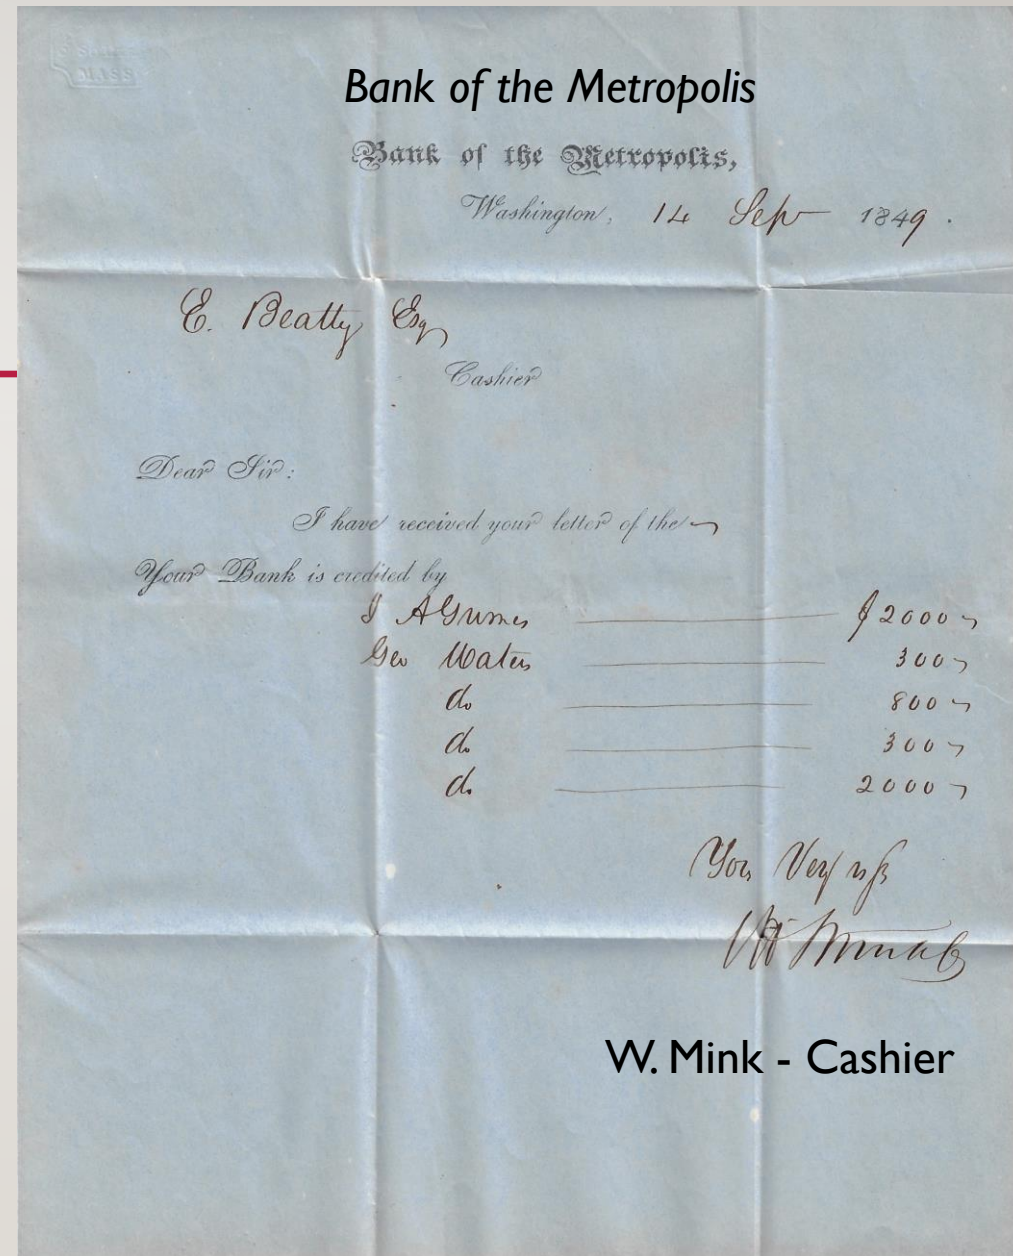 MASS
Bank of the Metropolis
Bank of the Metropolis,
Washington, 14 Sep 1849.
E. Beatty Esq
Cashier
Dear Sir:
I have received your letter of the
Your Bank is credited by
$2000
Geo Waters 300
do 800
do 300
do 2000
W. Mink - Cashier